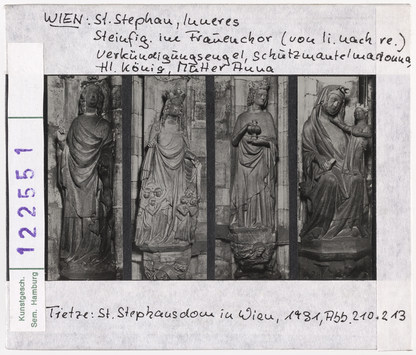 WIEN: St. Stephan, Inneres
Steinfig. im Frauenchor (von li. nach re.)
Verkündigungsengel, Schutzmantelmadonna,
Hl. König, Mutter Anna
122551
Kunstgesch.
Sem. Hamburg
Tietze: St. Stephansdom in Wien, 1931, Abb. 210-213